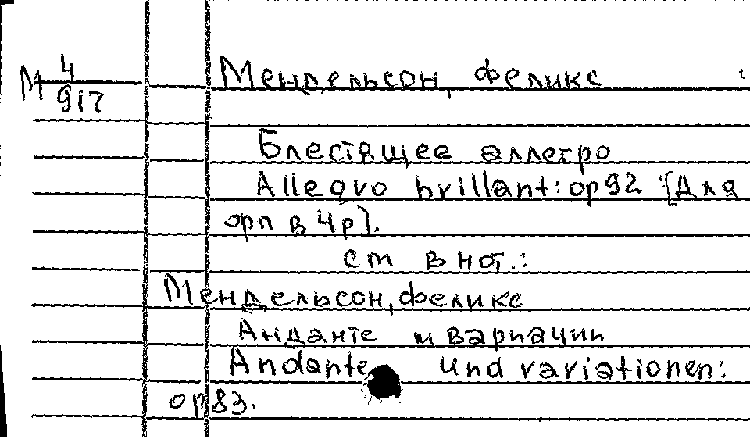 М 4/917
Мендельсон, Феликс
Блестящее аллегро
Allegro brillant: op92 [Для
орп в 4р].
см в нот.:
Мендельсон, Феликс
Анданте и вариации
Andante und variationen:
op83.